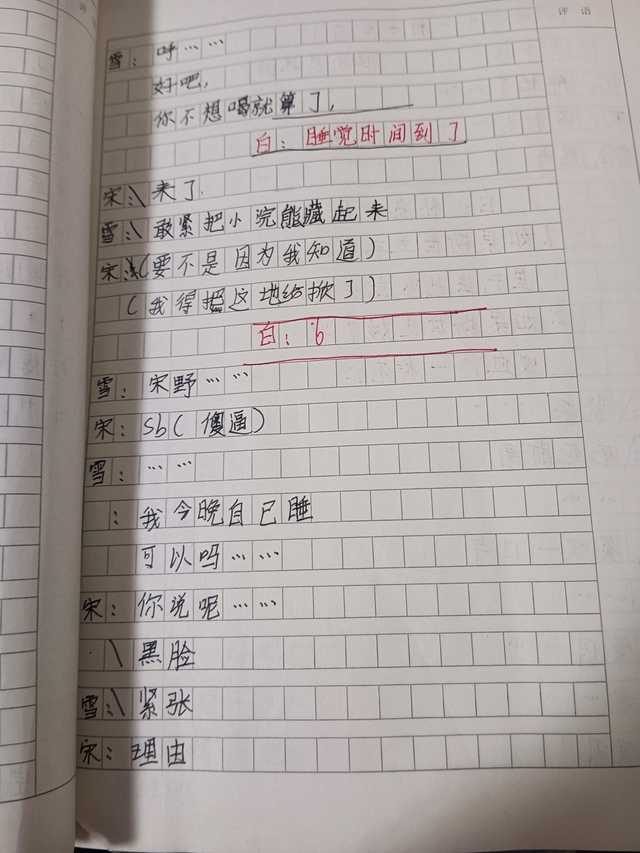 评语
雪：呼……
好吧，
你不想喝就算了，
白：睡觉时间到了
宋：\来了.
雪：\敢紧把小浣熊藏起来
宋：\(要不是因为我知道)
(我得把这地给掀了)
白：6
雪：宋野……
宋：sb(傻逼)
雪：……
：我今晚自己睡
可以吗……
宋：你说呢……
\黑脸
雪：\紧张
宋：理由